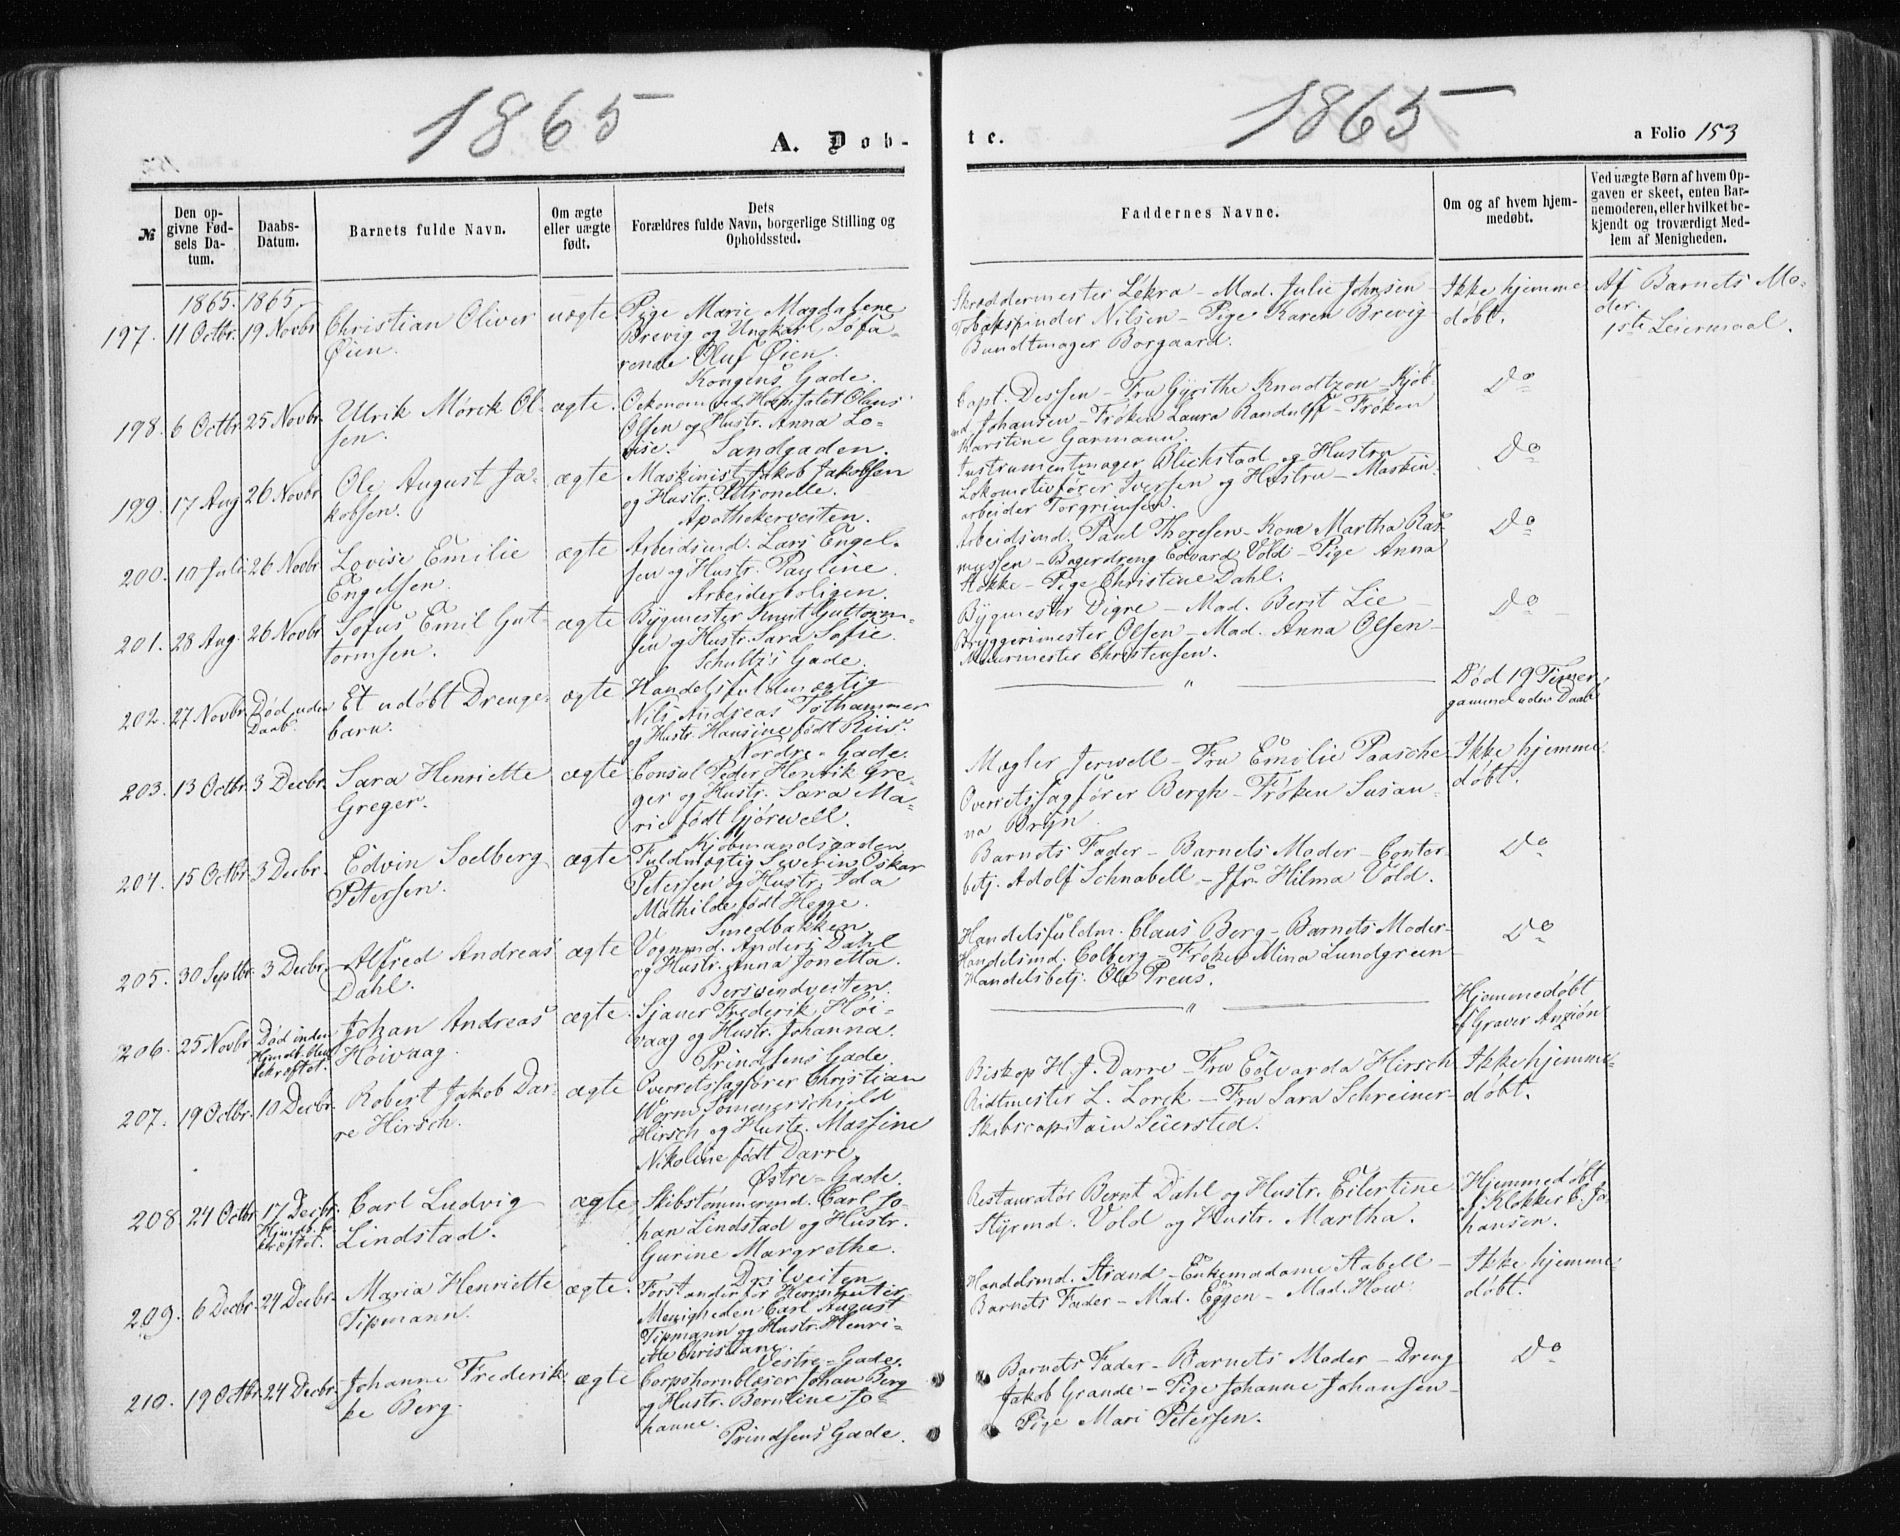 1865
A. Døb-
№
Den op-
givne Fød-
sels Da-
tum.
Daabs-
Datum.
Barnets fulde Navn.
Om ægte
eller uægte
født.
Dets
Forældres fulde Navn, borgerlige Stilling og
Opholdssted.
1865
te.
a Folio 153
Faddernes Navne.
Om og af hvem hjem-
medøbt.
Ved uægte Børn af hvem Op-
gaven er skeet, enten Bar-
nemoderen, eller hvilket be-
kjendt og troværdigt Med-
lem af Menigheden.
1865. 1865.
197. 11 Octbr. 19 Novbr.
Christian Oliver
Øien.
uægte
Pige Marie Magdalene
Brevig og Ungkarl Søfa-
rende Oluf Øien.
Kongens Gade.
Skræddermester Lekra - Mad. Julie Johnsen -
Tobakspinder Nilsen - Pige Karen Brevig
Bundtmager Borgaard.
Ikke hjemme
døbt.
Af Barnets Mo-
der.
1ste Leiermaal.
198. 6 Octbr. 25 Novbr.
Ulrik Mørck Ol-
sen.
ægte.
Oekonom ved Hospitalet Olaus
Olsen og Hustr. Anna Lo-
vise. Sandgaden.
Capt. Dessen - Fru Gyrithe Knudtzon - Kjøb-
md Johansen - Frøken Laura Randulff - Frøken
Karstine Garmann.
Do
199. 17 Aug 26 Novbr
Ole August Ja-
kobsen.
ægte
Maskinist Jakob Jakobsen
og Hustr. Petronelle.
Apothekerveiten.
Instrumentmager Blichstad og Hustru
Lokomotivfører Iversen og Hustru - Maskin-
arbeider Torgrimsen.
Do
200. 10 Juli 26 Novbr
Lovise Emilie
Engelsen.
ægte
Arbeidsmd. Lars Engel-
sen og Hustr. Pauline.
Arbeiderboligen.
Arbeidsmd. Paul Thoresen - Kone Martha Ras-
mussen - Bagerdreng Edvard Vold - Pige Anna
Hokke - Pige Christine Dahl.
Do
201. 28 Aug. 26 Novbr
Sofus Emil Gut-
tormsen.
ægte
Bygmester Knut Guttorm-
sen og Hustr. Sara Sofie.
Schultz's Gade.
Bygmester Digre - Mad. Berit Lie -
Bryggerimester Olsen - Mad. Anna Olsen -
Muurmester Christensen.
Do
202. 27 Novbr Død uden
Daab.
Et udøbt Drenge-
barn.
ægte
Handelsfuldmægtig
Nils Andreas Tothammer
og Hustr. Hansine født Riis.
Nordre-Gade.
"
Død 19 Timer
gammel uden Daab
203. 13 Octbr. 3 Decbr.
Sara Henriette
Greger.
ægte
Consul Peder Henrik Gre-
ger og Hustr. Sara Ma-
rie født Gjørwell.
Kjøbmandsgaden
Mægler Jerwell - Fru Emilie Paasche
Overretssagfører Bergh - Frøken Susan-
na Bryn.
Ikke hjemme-
døbt.
204. 15 Octbr. 3 Decbr.
Edvin Soelberg
Petersen.
ægte
Fuldmægtig Severin Oskar
Petersen og Hustr. Ida
Mathilde født Hegge.
Smedbakken
Barnets Fader - Barnets Moder - Contor-
betj. Adolf Schnabell - Jfr. Hilma Vold.
Do
205. 30 Septbr. 3 Decbr.
Alfred Andreas
Dahl.
ægte
Vognmd. Anders Dahl
og Hustr. Anna Jonetta.
Bersvendveiten.
Handelsfuldm. Claus Berg - Barnets Moder -
Handelsmd. Colberg - Frøken Mina Lundgreen
Handelsbetj. Ole Preus.
Do
206. 25 Novbr. Død inden
Hjmdb. blev
bekræftet.
Johan Andreas
Høivaag.
ægte.
Sjauer Frederik Høi-
vaag og Hustr. Johanna.
Prindsens Gade.
"
Hjemmedøbt
af Graver Anzjøn
207. 19 Octbr. 10 Decbr.
Robert Jakob Dar-
re Hirsch.
ægte
Overretssagfører Christian
Worm Sommerschield
Hirsch og Hustr. Massine
Nikoline født Darre.
Østre-Gade.
Biskop H. J. Darre - Fru Edvarda Hirsch
Ridtmester L. Lorck - Fru Sara Schreiner -
Skibscapitain Seiersted.
Ikke hjemme-
døbt.
208. 24 Octbr. 17 Decbr.
Hjmdb. be-
kræftet.
Carl Ludvig
Lindstad.
ægte
Skibstømmermd. Carl Jo-
han Lindstad og Hustr.
Gurine Margrethe.
Drilveiten
Restauratør Bernt Dahl og Hustr. Eilertine
Styrmd. Vold og Hustr. Martha.
Hjemmedøbt
af Klokker C. Jo-
hansen.
209. 6 Decbr. 24 Decbr.
Maria Henriette
Tipmann.
ægte.
Forstander for Herrnhuter-
Menigheden Carl August
Tipmann og Hustr. Henri-
ette Christiane.
Vestre-Gade.
Handelsmd. Strand - Enkemadame Stabell -
Barnets Fader - Mad. Eggen - Mad. How
Ikke hjemme-
døbt.
210. 19 Octbr. 24 Decbr.
Johanne Frederik-
ke Berg.
ægte
Corpshornblæser Johan Berg
og Hustr. Berntine Jo-
hanne.
Prindsens Gade.
Barnets Fader - Barnets Moder - Dreng
Jakob Grande - Pige Johanne Johansen -
Pige Mari Petersen.
Do